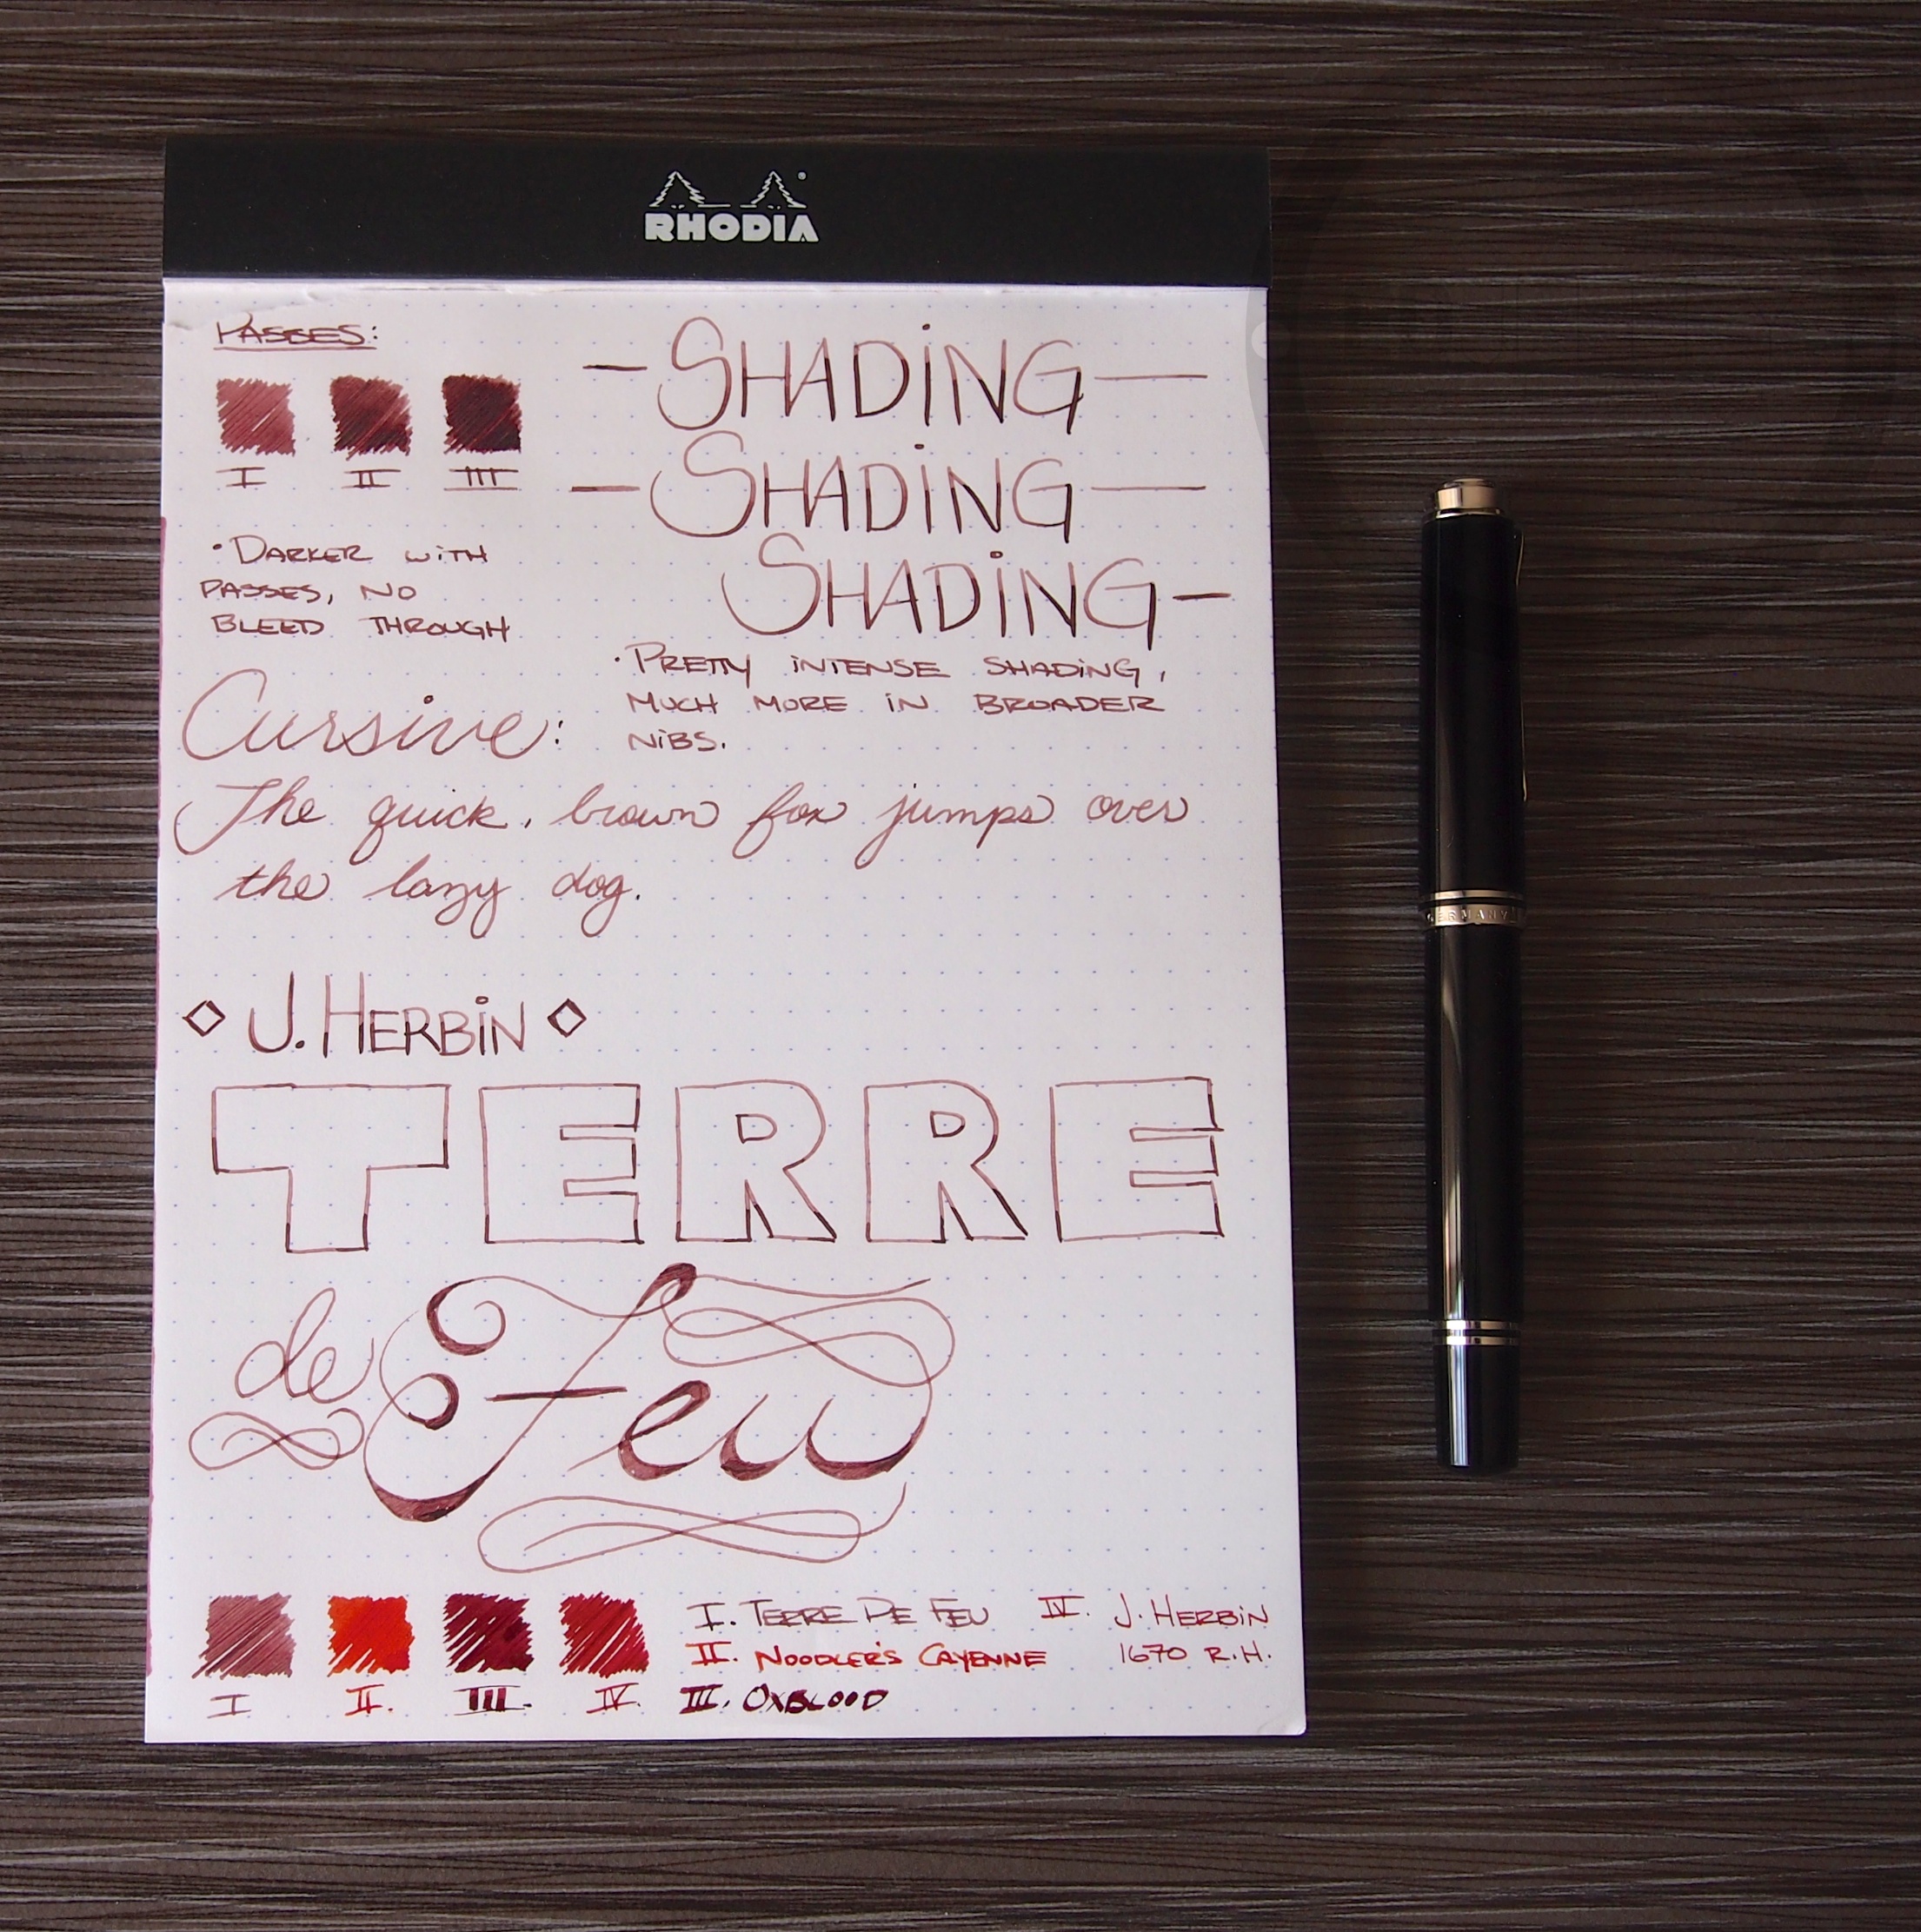 RHODIA
PASSES:
I II III
• DARKER WITH
PASSES, NO
BLEED THROUGH
- SHADING -
- SHADING -
SHADING -
• PRETTY INTENSE SHADING,
MUCH MORE IN BROADER
NIBS.
Cursive:
The quick, brown fox jumps over
the lazy dog.
◇ J. HERBIN ◇
TERRE
de Feu
I II. III. IV.
I. TERRE DE FEU
II. NOODLER'S CAYENNE
III. OXBLOOD
IV. J. HERBIN
1670 R.H.
GERMANY